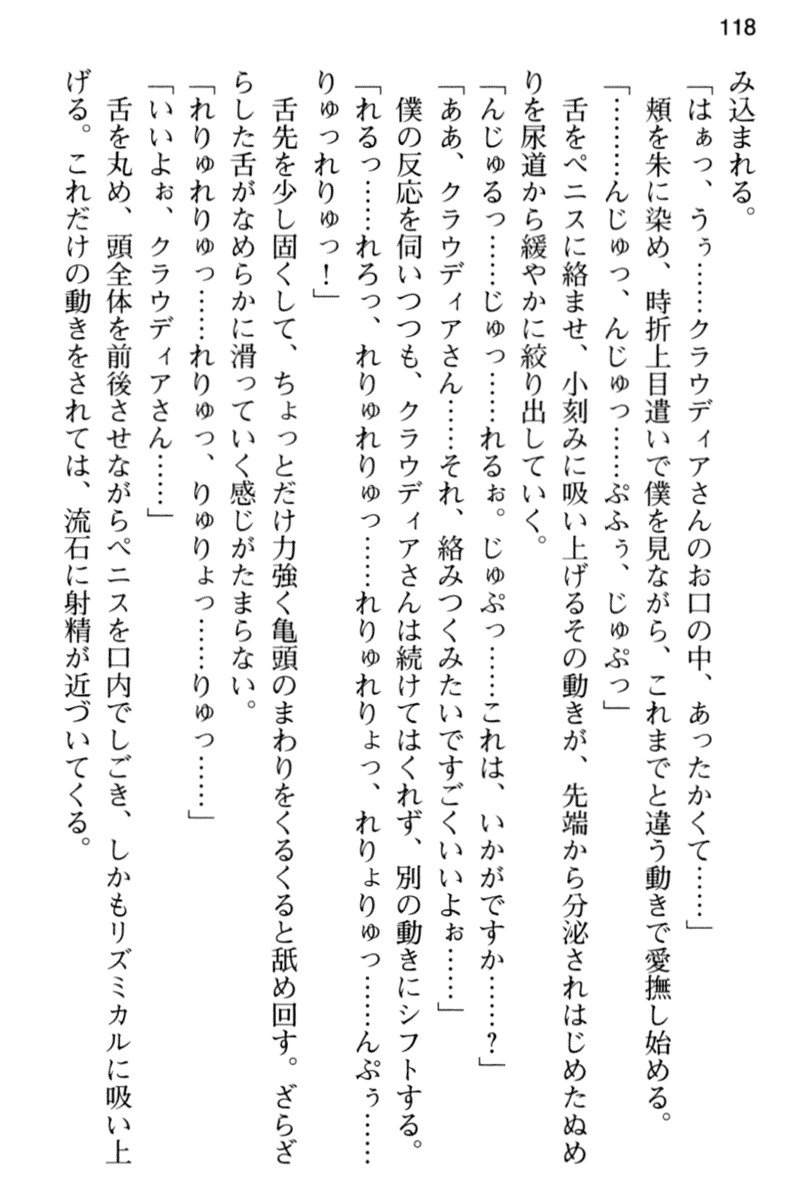 118
み込まれる。
「はぁっ、うぅ……クラウディアさんのお口の中、あったかくて……」
頬を朱に染め、時折上目遣いで僕を見ながら、これまでと違う動きで愛撫し始める。
「………んじゅっ、んじゅっ……ぷふぅ、じゅぷっ」
舌をペニスに絡ませ、小刻みに吸い上げるその動きが、先端から分泌されはじめたぬめ
りを尿道から緩やかに絞り出していく。
「んじゅるっ……じゅっ……れるぉ。じゅぷっ……これは、いかがですか……？」
「ああ、クラウディアさん……それ、絡みつくみたいですごくいいよぉ……」
僕の反応を伺いつつも、クラウディアさんは続けてはくれず、別の動きにシフトする。
「れるっ……れろっ、れりゅれりゅっ……れりゅれりょっ、れりょりゅっ……んぷぅ……
りゅっれりゅっ！」
舌先を少し固くして、ちょっとだけ力強く亀頭のまわりをくるくると舐め回す。ざらざ
らした舌がなめらかに滑っていく感じがたまらない。
「れりゅれりゅっ……れりゅっ、りゅりょっ……りゅっ……」
「いいよぉ、クラウディアさん……」
舌を丸め、頭全体を前後させながらペニスを口内でしごき、しかもリズミカルに吸い上
げる。これだけの動きをされては、流石に射精が近づいてくる。